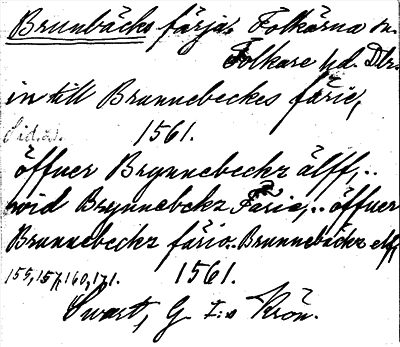 Brunbäcks färja. Folkärna sn.
Folkare hd. Dlr.
in till Brunnebeckes färie,
Sid. 1561.
öffuer Brynnebeckz älff,..
wid Brynnebckz Färie,.. öffuer
Brunnebeckz färio. Brunnebäckz elf,
155, 157, 160, 171. 1561.
Swart, G. I:s Krön.